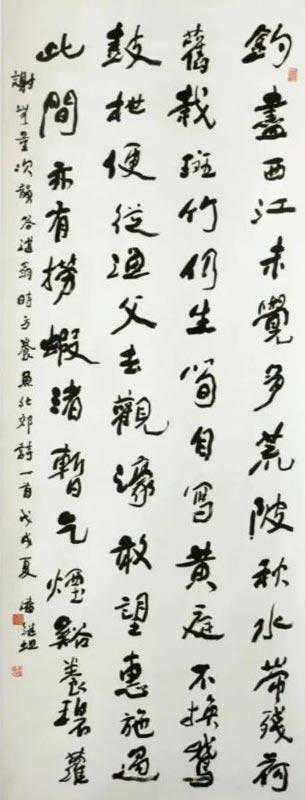 釣盡西江未覺多荒陂秋水帶殘荷
舊栽斑竹仍生筍自寫黃庭不換鵝
鼓枻便從漁父去觀濠敢望惠施過
此間亦有撈蝦渚暫乞煙谿養碧蘿
謝無量次韻答湛翁時方養魚北郊詩一首戊戌夏